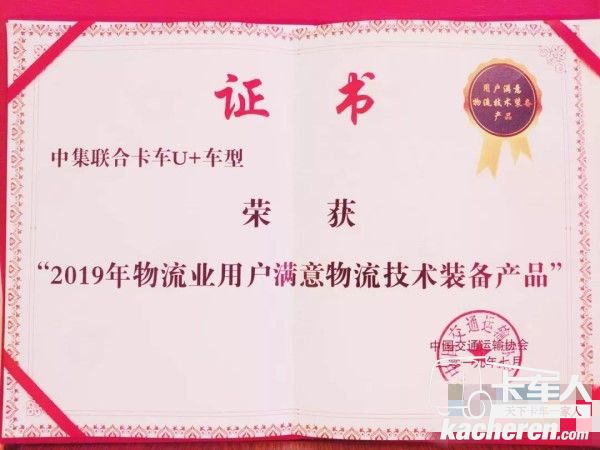 证 书
用户满意
物流技术装备
产品
中集联合卡车U+车型
荣 获
“2019年物流业用户满意物流技术装备产品”
中国交通运输协会
卡车人
天下卡车一家人
kacheren.com